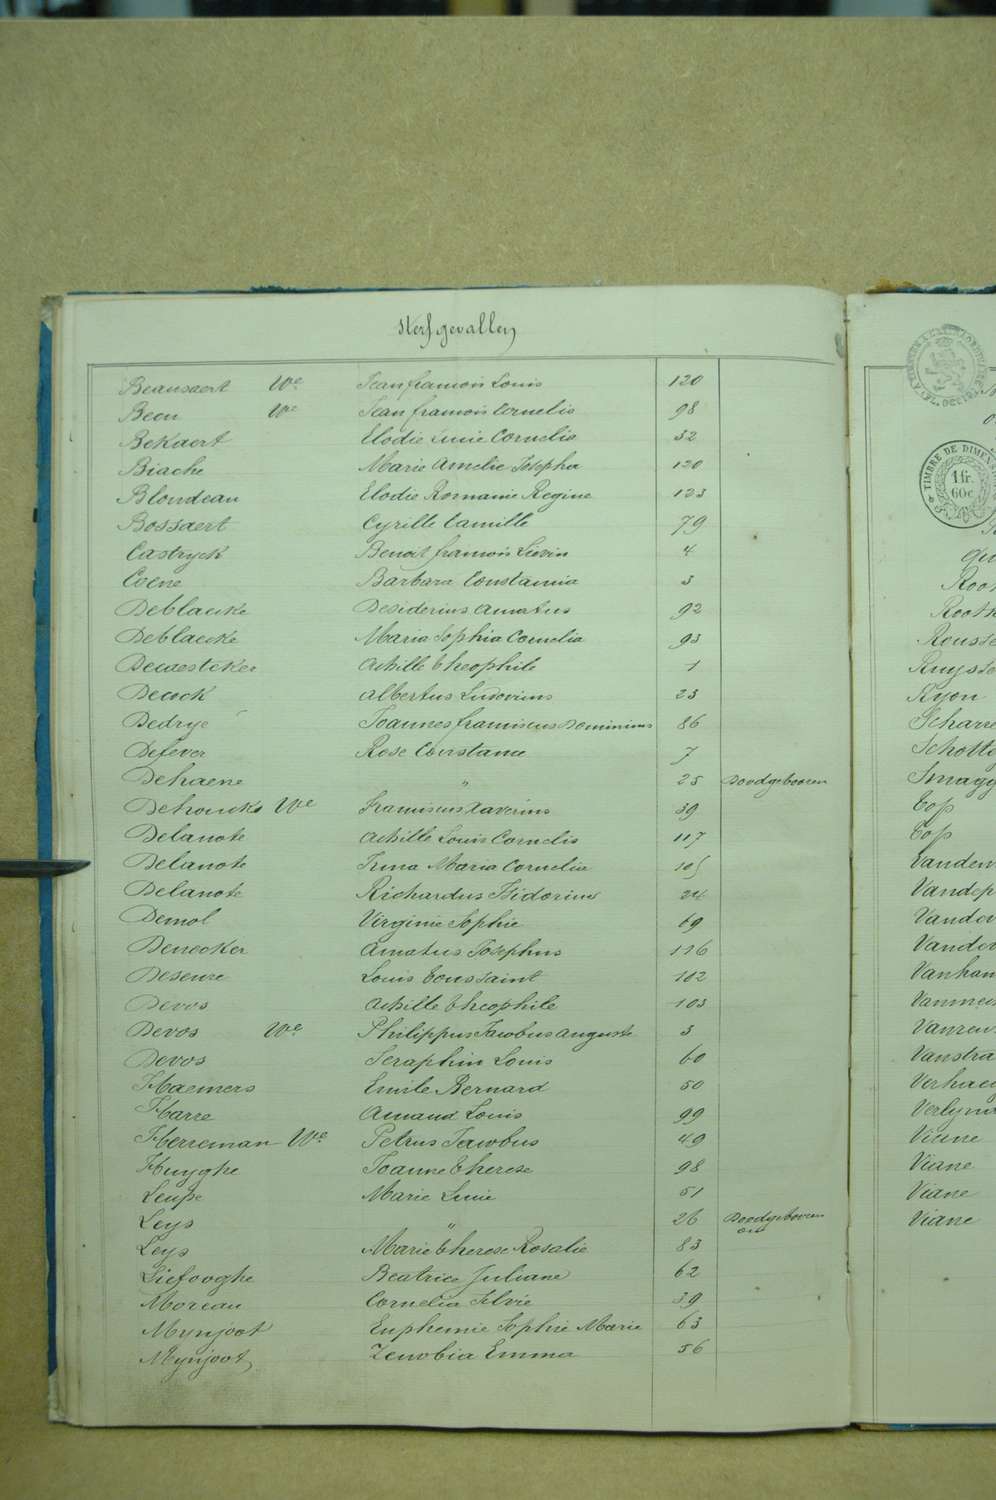 Sterfgevallen
Beausaert We Jean francois Louis 120
Beeu We Jean francois Cornelis 98
Bekaert Elodie Lucie Cornelie 32
Biache Marie Amelie Josepha 120
Blondeau Elodie Romanie Regine 123
Bossaert Cyrille Camille 79
Castryck Benoit francois Lievin 4
Coene Barbara Constancia 3
Deblaecke Desiderius Amatus 92
Deblaecke Maria Sophia Cornelia 93
Decaesteker Achille Theophile 1
Decock Albertus Ludovicus 23
Dedrye Joannes franciscus Dominicus 86
Defever Rose Constance 7
Dehaene " 25 Doodgebooren
Dehoucke We Franciscus Xaverius 39
Delanote Achille Louis Cornelis 117
Delanote Irma Maria Cornelia 105
Delanote Richardus Isidorius 24
Demol Virginie Sophie 69
Denecker Amatus Josephus 116
Deseure Louis Toussaint 102
Devos Achille Theophile 103
Devos We Philippus Jacobus Auguste 3
Devos Seraphin Louis 60
Haemers Emile Bernard 50
Harre Amand Louis 99
Herreman We Petrus Jacobus 49
Huyghe Joanne Therese 98
Leupe Marie Lucie 51
Leys " 26 Doodgebooren
Leys Marie Therese Rosalie 83
Liefooghe Beatrice Juliane 62
Moreau Cornelia Silvie 39
Mynjoot Euphemie Sophie Marie 63
Mynjoot Zenobia Emma 56
TIMBRE DE DIMENS
1 fr.
60c
Schotte
Top
Top
Viane
Viane
Viane
Viane